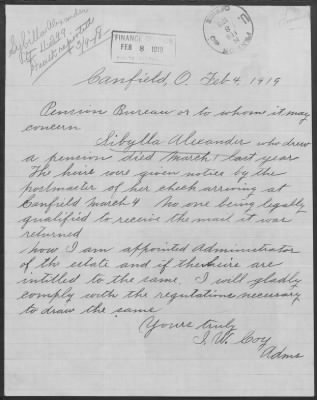 Sibylla Alexander
Death reported
3/4/18
FINANCE
FEB 8 1919
Canfield, O. Feb 4, 1919
Pension Bureau or to whom it may
concern
Sibylla Alexander who drew
a pension died March 1 last year
The heirs were given notice by the
postmaster of her check arriving at
Canfield March 4 No one being legally
qualified to receive the mail it was
returned
Now I am appointed Administrator
of the estate and if the heirs are
intitled to the same. I will gladly
comply with the regulations necessary
to draw the same
Yours truly
J. W. Coy
Adms